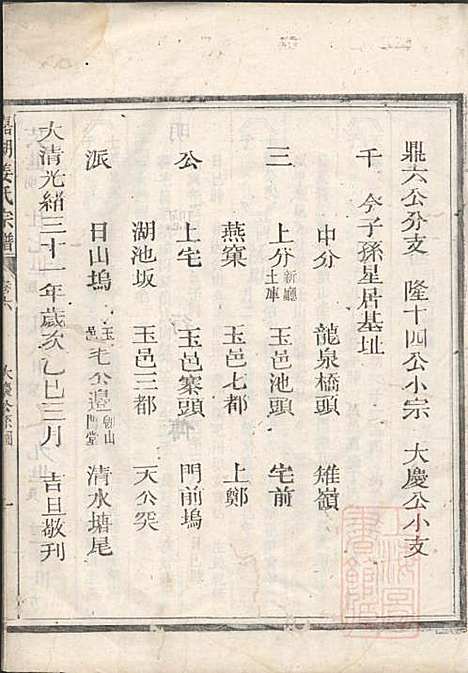 鼎六公分支　隆十四公小宗　大慶公小支
千　今子孫星居基址
申分　龍泉橋頭　雉嶺
三　上分新廳土庫　玉邑池頭　宅前
燕窠　玉邑七都　上鄭
公　上宅　玉邑寀頭　門前塢
湖池坂　玉邑三都　天公突
派　日山塢　玉邑毛公邉　清水塘尾
大清光緒三十一年歲次乙巳三月　吉旦敬刊
湖姜氏宗譜　卷六　大慶公系圖　一